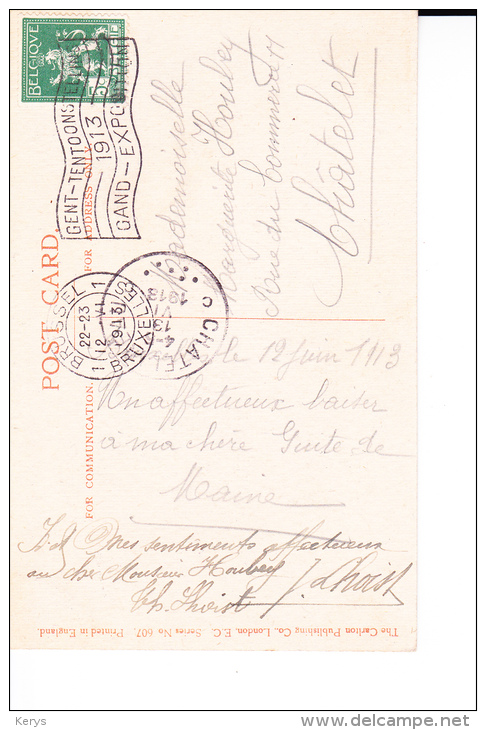 BELGIQUE
5
GENT-TENTOONSTELLING
1913
GAND-EXPOSITION
POST CARD.
FOR ADDRESS ONLY.
FOR COMMUNICATION.
Mademoiselle
Marguerite Houbey
Rue du Commerce
Châtelet
BRUSSEL 1
22-23
12 VI
1913
1 BRUXELLES
CHATEL
4-
13
VI
1913
le 12 juin 1913
Un affectueux baiser
à ma chère Guite de
Maine
Mes sentiments affectueux
au cher Monsieur Houbey
J. Lhoist
Th. Lhoist
The Carlton Publishing Co., London, E.C. Series No 607. Printed in England.
Kerys
delcampe.net